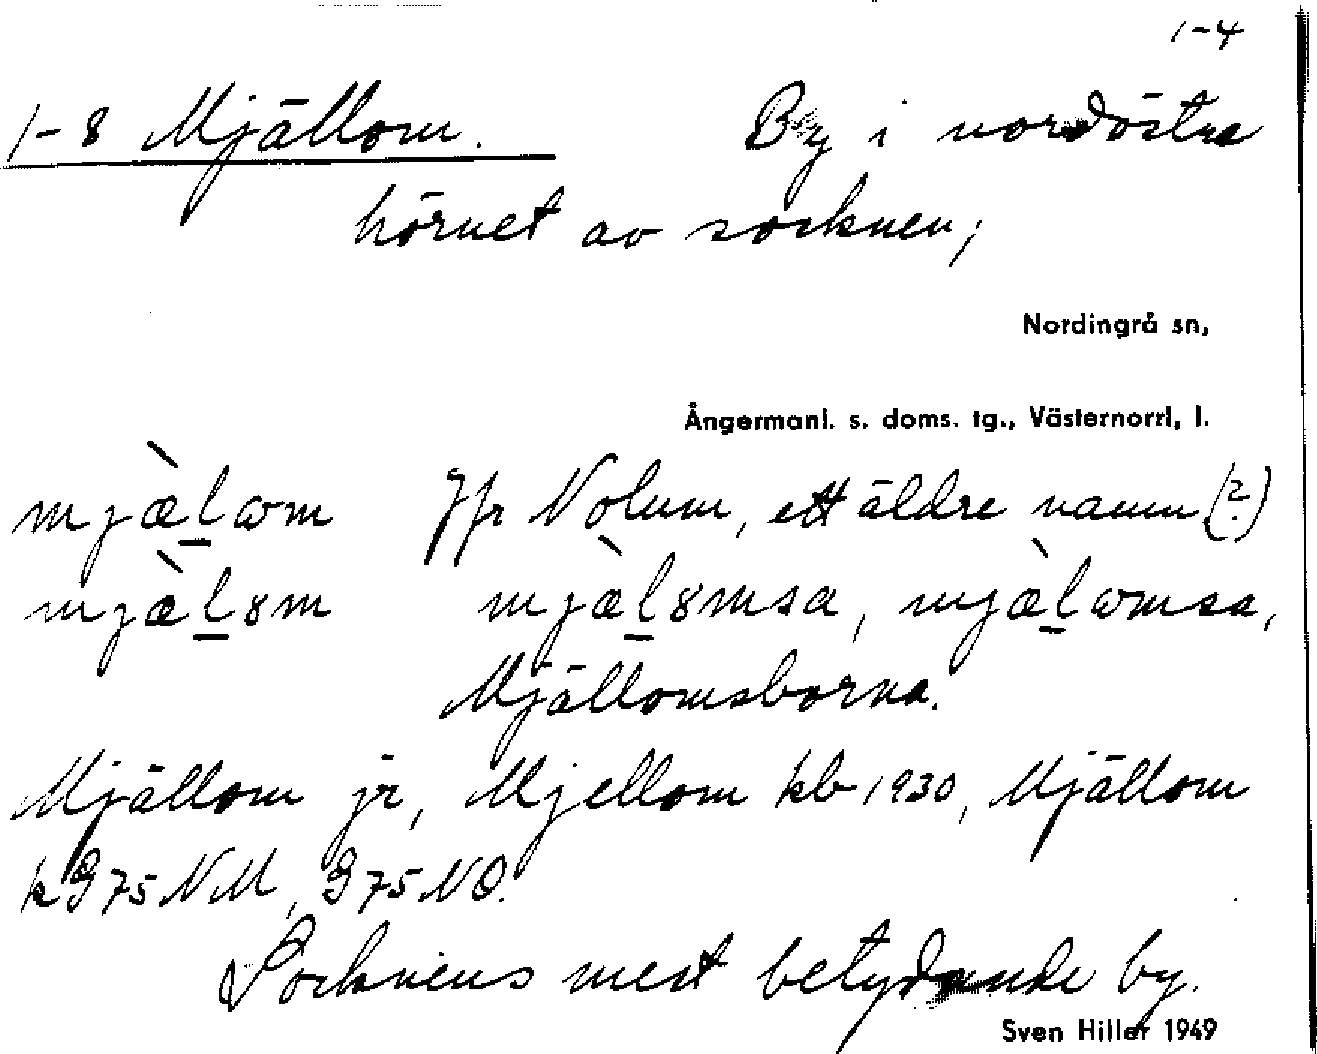 1-4
1-8 Mjällom. By i nordöstra
hörnet av socknen;
Nordingrå sn,
Ångermanl. s. doms. tg., Västernorrl. l.
mjæ̀l̲ωm Jfr Nolum, ett äldre namn (?)
mjæ̀l̲8m mjæ̀l̲8msa, mjæ̀l̲ωmsa,
Mjällomsborna.
Mjällom jr, Mjellom kb 1930, Mjällom
k 975 NM, 975 NO.
Socknens mest betydande by.
Sven Hiller 1949